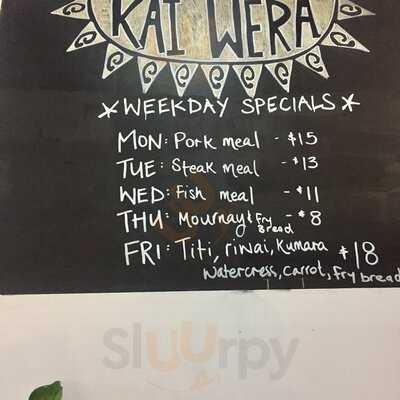 KAI WERA
*WEEKDAY SPECIALS*
MON: Pork meal - $15
TUE: Steak meal - $13
WED: Fish meal - $11
THU: Mournay & fry Bread - $8
FRI: Titi, riwai, Kumara $18
Watercress, Carrot, fry bread
Sluurpy